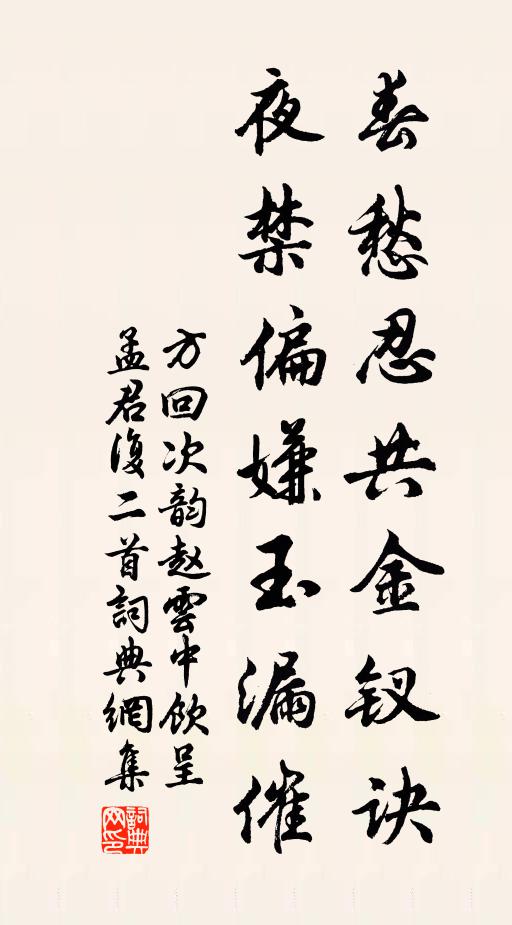 春愁忍共金钗诀
夜禁偏嫌玉漏催
方回次韵赵雲中飲呈
孟君復二首詞典網集
詞典網印